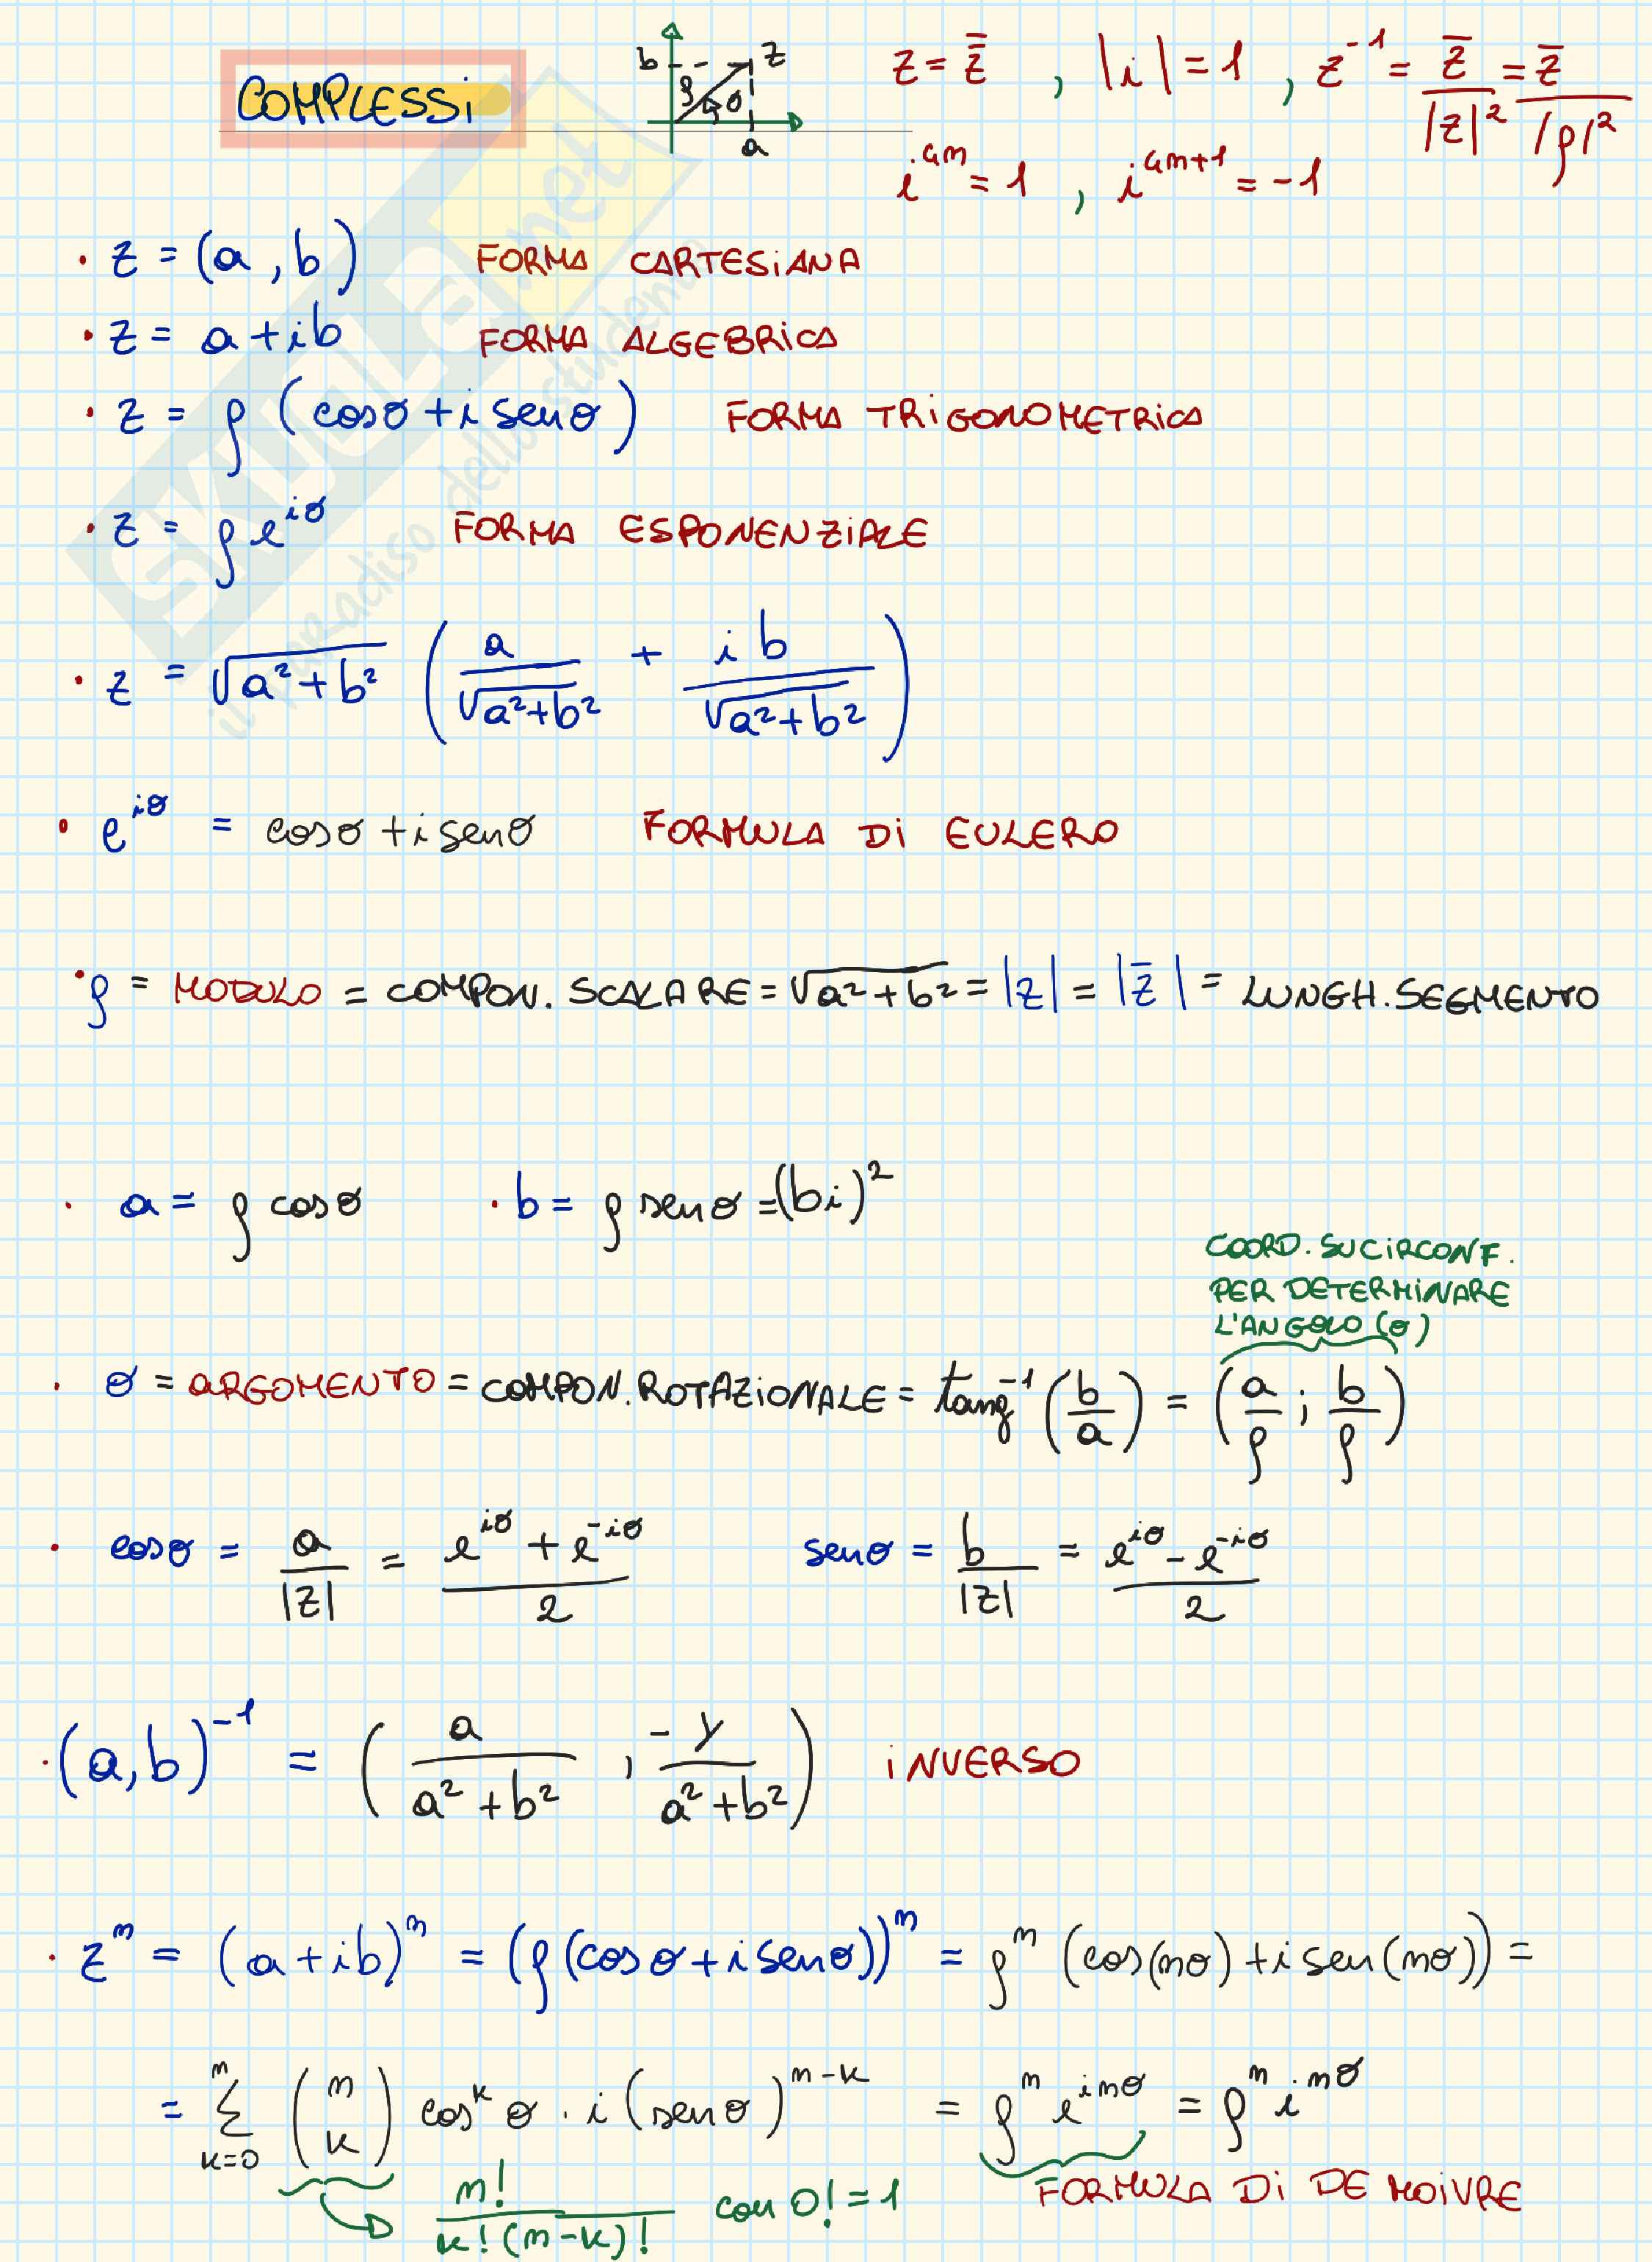 COMPLESSi
b z ρ θ a
z = z̿ , |i| = 1 , z⁻¹ = z̅/|z|² = z̅/|ρ|²
i⁴ⁿ = 1 , i⁴ⁿ⁺¹ = -1
· z = (a, b) FORMA CARTESIANA
· z = a + ib FORMA ALGEBRICA
· z = ρ (cosθ + i senθ) FORMA TRIGONOMETRICA
· z = ρ e^{iθ} FORMA ESPONENZIALE
· z = √(a²+b²) ( a/√(a²+b²) + i b/√(a²+b²) )
· e^{iθ} = cosθ + i senθ FORMULA Di EULERO
· ρ = MODULO = COMPON. SCALARE = √(a²+b²) = |z| = |z̅| = LUNGH. SEGMENTO
· a = ρ cosθ · b = ρ senθ = (bi)²
COORD. SU CIRCONF.
PER DETERMINARE
L'ANGOLO (θ)
· θ = ARGOMENTO = COMPON. ROTAZIONALE = tang⁻¹ (b/a) = (a/ρ ; b/ρ)
· cosθ = a/|z| = (e^{iθ} + e^{-iθ})/2 senθ = b/|z| = (e^{iθ} - e^{-iθ})/2
· (a, b)⁻¹ = ( a/(a²+b²) , -y/(a²+b²) ) iNVERSO
· zⁿ = (a + ib)ⁿ = (ρ (cosθ + i senθ))ⁿ = ρⁿ (cos(nθ) + i sen(nθ)) =
= Σ_{k=0}^{n} (n k) cos^k θ · i (senθ)^{n-k} = ρⁿ e^{inθ} = ρⁿ i^{nθ}
n!/(k!(n-k)!) con 0! = 1 FORMULA Di DE MOIVRE
SKUOLA.net
il paradiso dello studente